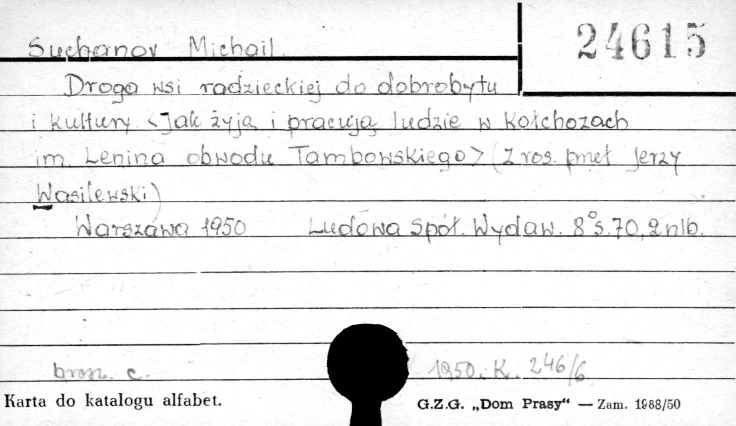 24615
Suchanov Michail.
Droga wsi radzieckiej do dobrobytu
i kultury. <Jak żyją i pracują ludzie w kołchozach
im. Lenina obwodu Tambowskiego> (Z ros. przeł. Jerzy
Wasilewski)
Warszawa 1950 Ludowa Spół. Wydaw. 8° s. 70, 2 nlb.
brosz. c. 1950. K. 246/6
Karta do katalogu alfabet. G.Z.G. „Dom Prasy“ — Zam. 1988/50